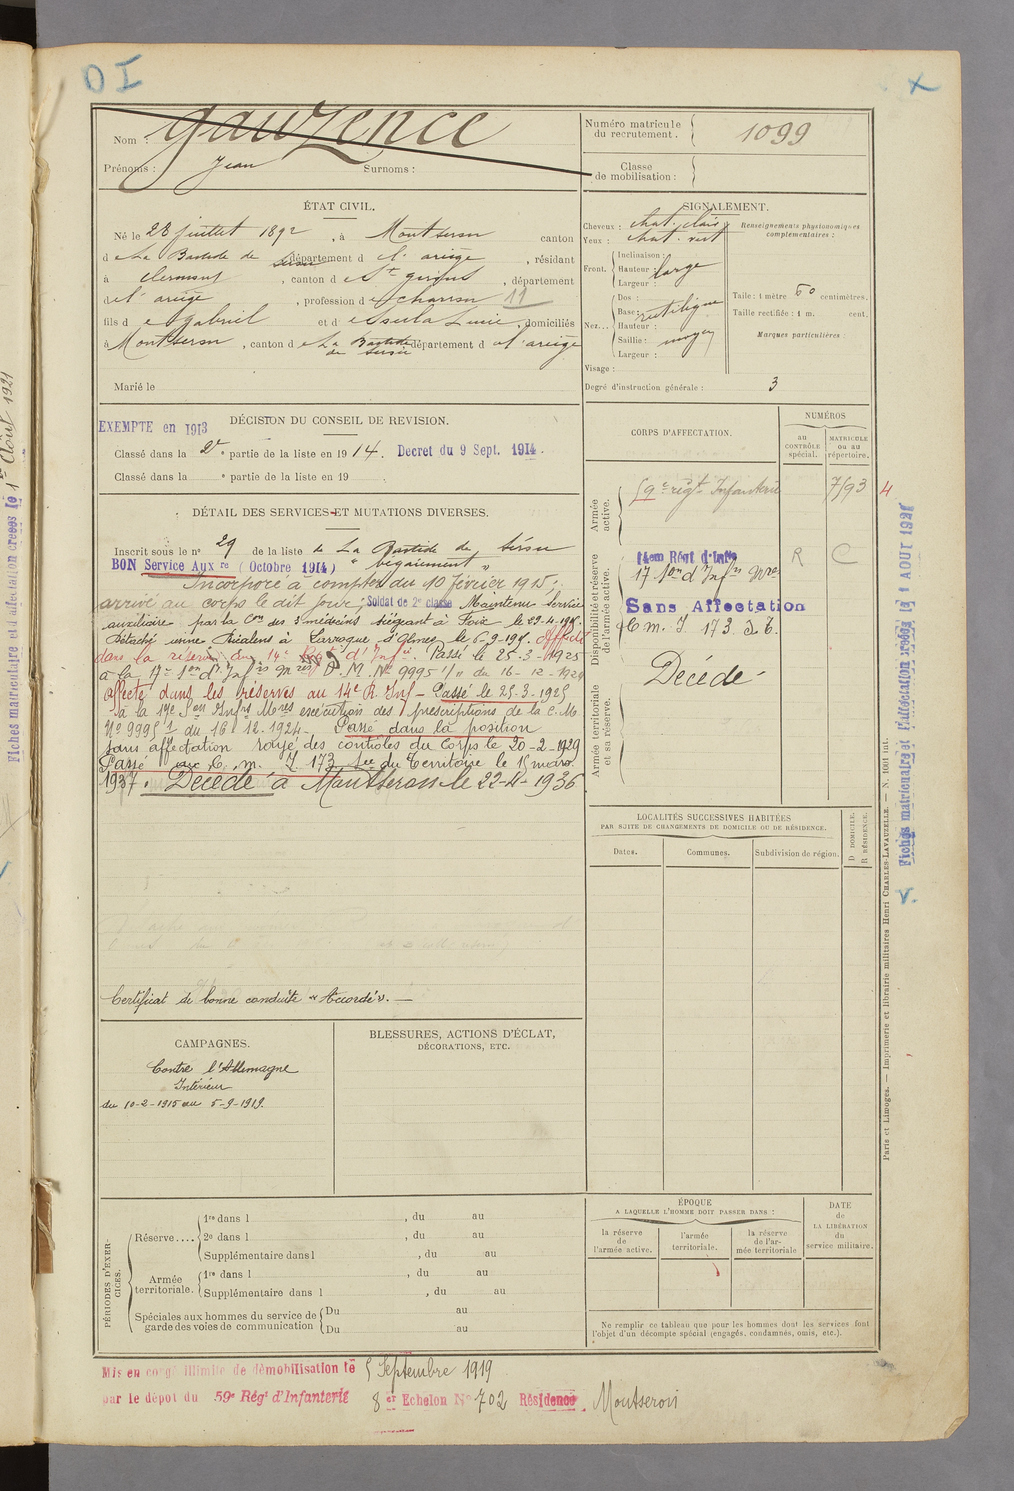 OI
X
Nom : Gauzence
Prénoms : Jean Surnoms :
Numéro matricule du recrutement. 1099
Classe de mobilisation :
ÉTAT CIVIL.
Né le 28 juillet 1892, à Montseron canton
d e La Bastide de Serou département d e l'ariège, résidant
à Clermont, canton d e St girons, département
de l'ariège, profession d e charron 11
fils d e Gabriel et d e domiciliés
à Montseron, canton d e La Bastide de Serou département d e l'ariège
Marié le
SIGNALEMENT.
Cheveux : chat. clair
Yeux : chat. vert
Front. Inclinaison :
Hauteur : large
Largeur :
Nez... Dos :
Base : rectiligne
Hauteur :
Saillie : moyen
Largeur :
Visage :
Renseignements physionomiques complémentaires :
Taille : 1 mètre 60 centimètres.
Taille rectifiée : 1 m. cent.
Marques particulières
Degré d'instruction générale : 3
DÉCISION DU CONSEIL DE REVISION.
EXEMPTE en 1913
Classé dans la 2e partie de la liste en 1914. Decret du 9 Sept. 1914.
Classé dans la e partie de la liste en 19
DÉTAIL DES SERVICES ET MUTATIONS DIVERSES.
Inscrit sous le n° 29 de la liste de La Bastide de Sérou
BON Service Auxre (Octobre 1914) "begaiement"
Incorporé à compter du 10 février 1915;
arrivé au corps le dit jour; Soldat de 2e classe Maintenu Service
auxiliaire par la Con des 3 médecins siégeant à Foix le 29-4-
Détaché usine à Larroque d'Olmes le 6-9- Affecté
dans la réserve du 14e Regt d'Infie. Passé le 25-3-1925
à la 17e Son d'Infrs Mres D.M. No 9995 1/11 du 16-12-1924
affecté dans les réserves au 14e R Inf - Passé le 25-3-1925
à la 17e Son Infrs Mres exécution des prescriptions de la C.M.
No 9995 du 16 12. 1924 - Passé dans la position
sans affectation rayé des contrôles du Corps le 20-2-1929
Passé au C. m. I 173 du Territoire le 15 mars
1937. Décédé à Montseron le 22-4-1936
Certificat de bonne conduite "Accordé". —
CORPS D'AFFECTATION.
NUMÉROS
au CONTRÔLE spécial.
MATRICULE ou au répertoire.
Armée active.
59e regt Infanterie 7193 4
Disponibilité et réserve de l'armée active.
14em Régt d'Infie R C
17 Son d'Infrs Mres
Sans Affectation
C m. I 173 S. T.
Armée territoriale et sa réserve.
Décédé
LOCALITÉS SUCCESSIVES HABITÉES
PAR SUITE DE CHANGEMENTS DE DOMICILE OU DE RÉSIDENCE.
Dates. Communes. Subdivision de région. D DOMICILE. R RÉSIDENCE.
CAMPAGNES.
Contre l'Allemagne
Intérieur
du 10-2-1915 au 5-9-1919.
BLESSURES, ACTIONS D'ÉCLAT,
DÉCORATIONS, ETC.
PÉRIODES D'EXERCICES.
Réserve.... 1re dans l , du au
2e dans l , du au
Supplémentaire dans l , du au
Armée territoriale. 1re dans l , du au
Supplémentaire dans l , du au
Spéciales aux hommes du service de garde des voies de communication Du au
Du au
ÉPOQUE
A LAQUELLE L'HOMME DOIT PASSER DANS :
la réserve de l'armée active.
l'armée territoriale.
la réserve de l'armée territoriale
DATE de LA LIBÉRATION du service militaire.
Ne remplir ce tableau que pour les hommes dont les services font
l'objet d'un décompte spécial (engagés, condamnés, omis, etc.).
Mis en congé illimité de démobilisation le 5 Septembre 1919
par le dépot du 59e Régt d'Infanterie 8 er Echelon No 702 Résidence Montseron
Paris et Limoges. — Imprimerie et librairie militaires Henri CHARLES-LAVAUZELLE. — N. 1001 int.
Fiches matriculaire et d'affectation creees le 1 AOUT 1921
V.
Fiches matriculaire et d'affectation creees le 1er Août 1921